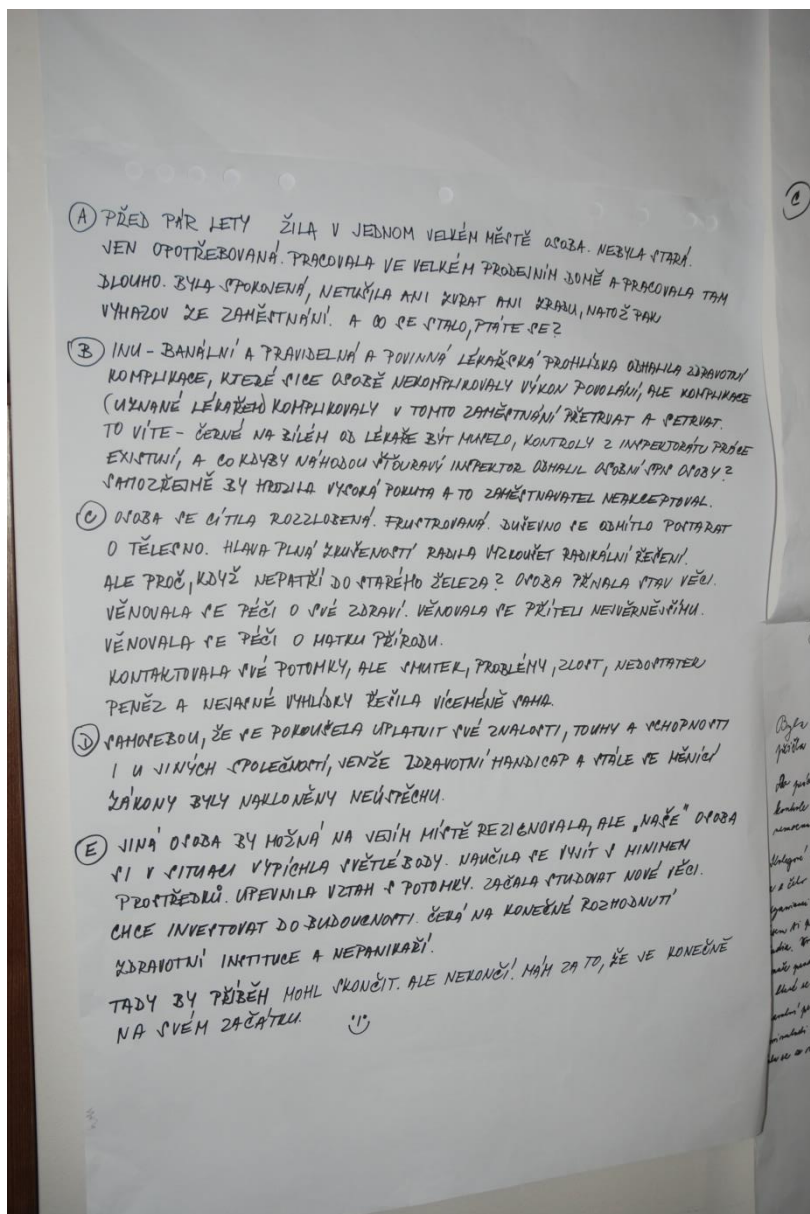 Ⓐ PŘED PÁR LETY ŽILA V JEDNOM VELKÉM MĚSTĚ OSOBA. NEBYLA STARÁ.
JEN OPOTŘEBOVANÁ. PRACOVALA VE VELKÉM PRODEJNÍM DOMĚ A PRACOVALA TAM
DLOUHO. BYLA SPOKOJENÁ, NETUŠILA ANI ZVRAT ANI ZRADU, NATOŽ PAK
VYHAZOV ZE ZAMĚSTNÁNÍ. A CO SE STALO, PTÁTE SE?
Ⓑ INU - BANÁLNÍ A PRAVIDELNÁ A POVINNÁ LÉKAŘSKÁ PROHLÍDKA ODHALILA ZDRAVOTNÍ
KOMPLIKACE, KTERÉ SICE OSOBĚ NEKOMPLIKOVALY VÝKON POVOLÁNÍ, ALE KOMPLIKACE
(UZNANÉ LÉKAŘEM) KOMPLIKOVALY V TOMTO ZAMĚSTNÁNÍ PŘETRVAT A SETRVAT.
TO VÍTE - ČERNÉ NA BÍLÉM OD LÉKAŘE BÝT MUSELO, KONTROLY Z INSPEKTORÁTU PRÁCE
EXISTUJÍ, A CO KDYBY NÁHODOU ŠŤOURAVÝ INSPEKTOR ODHALIL OSOBNÍ SPIS OSOBY?
SAMOZŘEJMĚ BY HROZILA VYSOKÁ POKUTA A TO ZAMĚSTNAVATEL NEAKCEPTOVAL.
Ⓒ OSOBA SE CÍTILA ROZZLOBENÁ. FRUSTROVANÁ. DUŠEVNO SE ODMÍTLO POSTARAT
O TĚLESNO. HLAVA PLNÁ ZKUŠENOSTÍ RADILA VYZKOUŠET RADIKÁLNÍ ŘEŠENÍ.
ALE PROČ, KDYŽ NEPATŘÍ DO STARÉHO ŽELEZA? OSOBA PŘIJALA STAV VĚCI.
VĚNOVALA SE PÉČI O SVÉ ZDRAVÍ. VĚNOVALA SE PŘÍTELI NEJVĚRNĚJŠÍMU.
VĚNOVALA SE PÉČI O MATKU PŘÍRODU.
KONTAKTOVALA SVÉ POTOMKY, ALE SMUTEK, PROBLÉMY, ZLOST, NEDOSTATEK
PENĚZ A NEJASNÉ VYHLÍDKY ŘEŠILA VÍCEMÉNĚ SAMA.
Ⓓ SAMOSEBOU, ŽE SE POKOUŠELA UPLATNIT SVÉ ZNALOSTI, TOUHY A SCHOPNOSTI
I U JINÝCH SPOLEČNOSTÍ, JENŽE ZDRAVOTNÍ HANDICAP A STÁLE SE MĚNÍCÍ
ZÁKONY BYLY NAKLONĚNY NEÚSPĚCHU.
Ⓔ JINÁ OSOBA BY MOŽNÁ NA JEJÍM MÍSTĚ REZIGNOVALA, ALE „NAŠE" OSOBA
SI V SITUACI VYPÍCHLA SVĚTLÉ BODY. NAUČILA SE VYJÍT S MINIMEM
PROSTŘEDKŮ. UPEVNILA VZTAH S POTOMKY. ZAČALA STUDOVAT NOVÉ VĚCI.
CHCE INVESTOVAT DO BUDOUCNOSTI. ČEKÁ NA KONEČNÉ ROZHODNUTÍ
ZDRAVOTNÍ INSTITUCE A NEPANIKAŘÍ.
TADY BY PŘÍBĚH MOHL SKONČIT. ALE NEKONČÍ! MÁM ZA TO, ŽE JE KONEČNĚ
NA SVÉM ZAČÁTKU.
Ⓒ
Byla